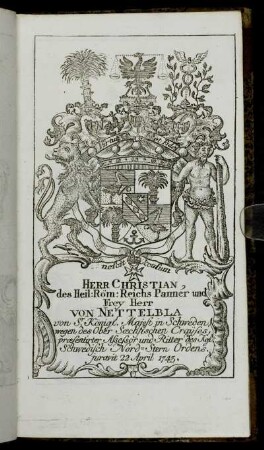 HERR CHRISTIAN,
des Heil: Röm: Reichs Panner und
Frey Herr
VON NETTELBLA
von Sr. Königl. Majest. in Schweden,
wegen des Ober Saechsischen Craises
præsentirter Assessor und Ritter des Kgl.
Schwedisch Nord=Stern Ordens,
juravit 22 April 1745.